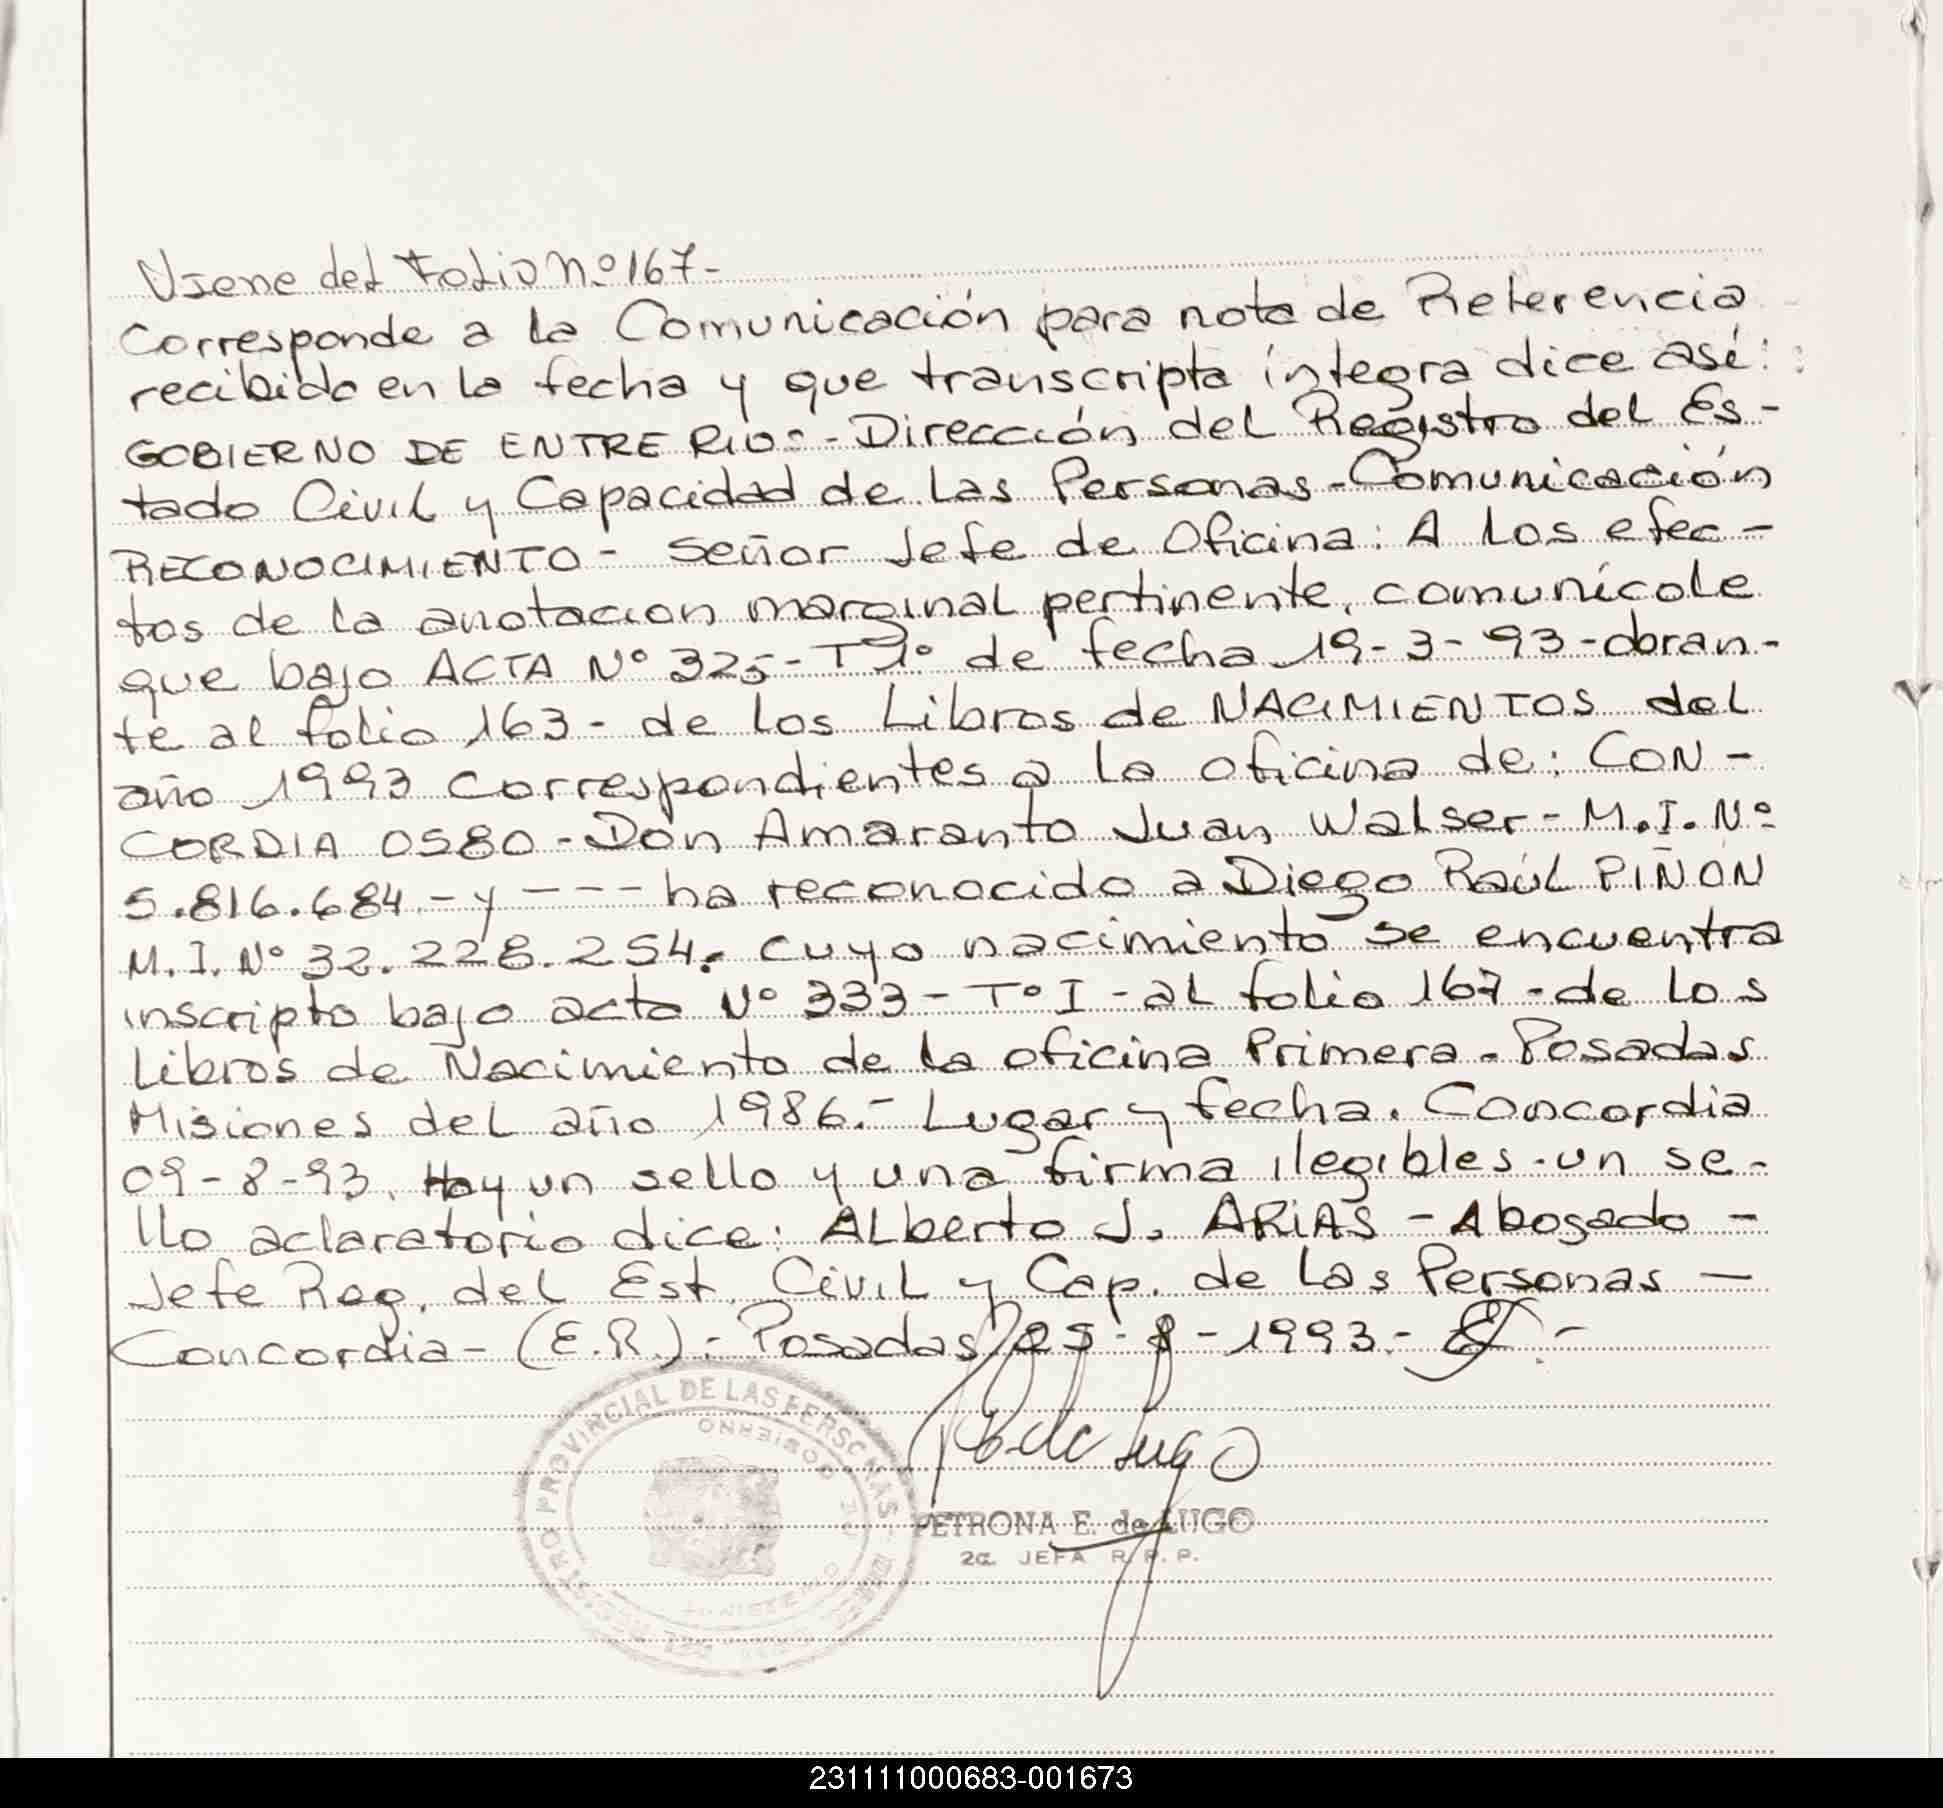 Viene del Folio Nº 167-
Corresponde a la Comunicación para nota de Referencia
recibida en la fecha y que transcripta íntegra dice así: :
GOBIERNO DE ENTRE RIOS - Dirección del Registro del Es-
tado Civil y Capacidad de las Personas - Comunicación
RECONOCIMIENTO - Señor Jefe de Oficina: A los efec-
tos de la anotacion marginal pertinente, comunícole
que bajo ACTA Nº 325 - Tº 1º de fecha 19-3-93 - obran-
te al folio 163 - de los Libros de NACIMIENTOS del
año 1993 correspondientes a la oficina de: CON-
CORDIA 0580 - Don Amaranto Juan Walser - M.I. Nº
5.816.684 - y - - - ha reconocido a Diego Raúl PIÑON
M.I. Nº 32.228.254. cuyo nacimiento se encuentra
inscripto bajo acta Nº 333 - Tº I - al folio 167 - de los
Libros de Nacimiento de la oficina Primera - Posadas
Misiones del año 1986.- Lugar y fecha. Concordia
09-8-93. Hay un sello y una firma ilegibles. un se-
llo aclaratorio dice: Alberto J. ARIAS - Abogado -
Jefe Reg. del Est. Civil y Cap. de las Personas -
Concordia - (E.R.) - Posadas 25-8-1993.-
REGISTRO PROVINCIAL DE LAS PERSONAS
MINISTERIO DE GOBIERNO
P E de Lugo
PETRONA E. de LUGO
2a. JEFA R. P. P.
231111000683-001673